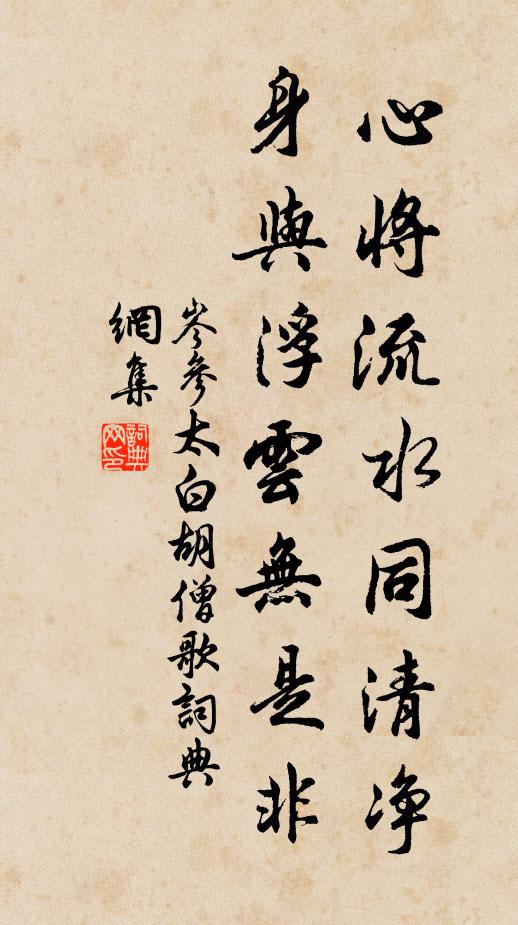 心將流水同清净
身與浮雲無是非
岑參太白胡僧歌詞典
網集
詞典
网印